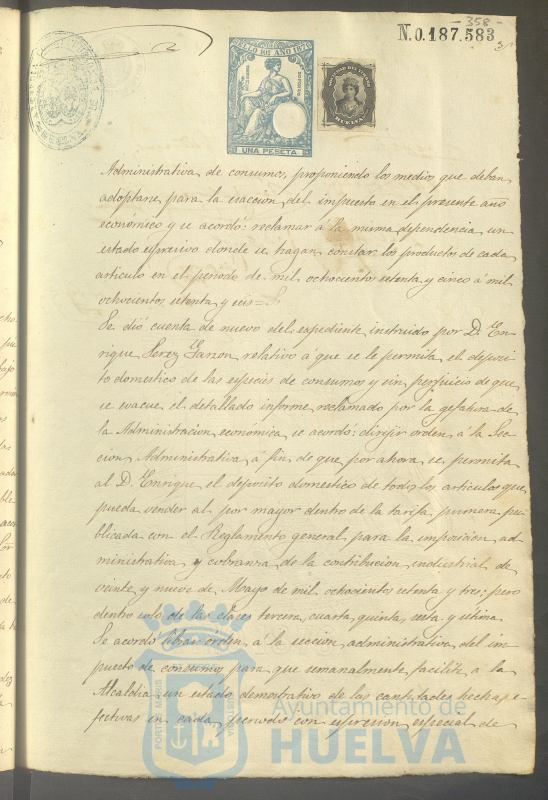 358-
N.0.187.583
SELLO 10º AÑO 1876
UNA PESETA
HUELVA
Administrativa de consumos, proponiendo los medios que deban
adoptarse para la exaccion del impuesto en el presente año
económico y se acordó: reclamar á la misma dependencia un
estado espresivo donde se hagan constar los productos de cada
articulo en el periodo de mil ochocientos setenta y cinco á mil
ochocientos setenta y seis=
Se dió cuenta de nuevo del espediente instruido por D. En-
rique Perez Garzon relativo á que se le permita el deposi-
to domestico de las especies de consumos y sin perjuicio de que
se evacue el detallado informe reclamado por la gefatura de
la Administracion económica se acordó: dirijir orden á la Sec-
cion Administrativa á fin de que por ahora se permita
al D. Enrique el deposito domestico de todos los articulos que
pueda vender al por mayor dentro de la tarifa primera pu-
blicada con el Reglamento general para la imposicion, ad-
ministrativa y cobranza de la contribucion industrial de
veinte y nueve de Mayo de mil ochocientos setenta y tres; pero
dentro solo de las clases tercera, cuarta, quinta, sesta y setima
Se acordó librar orden á la seccion administrativa del im-
puesto de consumos para que semanalmente facilite a la
Alcaldia un estado demostrativo de las cantidades hechas e-
fectivas en cada periodo con espresion especial de
PORTUS MARIS
Ayuntamiento de
HUELVA